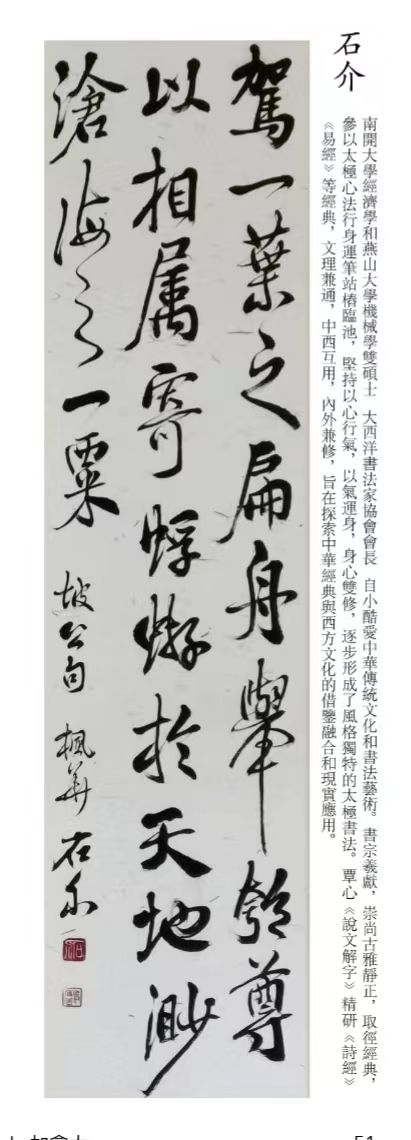 石介
南開大學經濟學和燕山大學機械學雙碩士 大西洋書法家協會會長 自小酷愛中華傳統文化和書法藝術。書宗羲獻，崇尚古雅靜正，取徑經典，
參以太極心法行身運筆站椿臨池，堅持以心行氣，以氣運身，身心雙修，逐步形成了風格獨特的太極書法。覃心《說文解字》精研《詩經》
《易經》等經典，文理兼通，中西互用，內外兼修，旨在探索中華經典與西方文化的借鑒融合和現實應用。
駕一葉之扁舟舉匏尊
以相属寄蜉蝣於天地渺
滄海之一粟 坡公句 楓華 石介